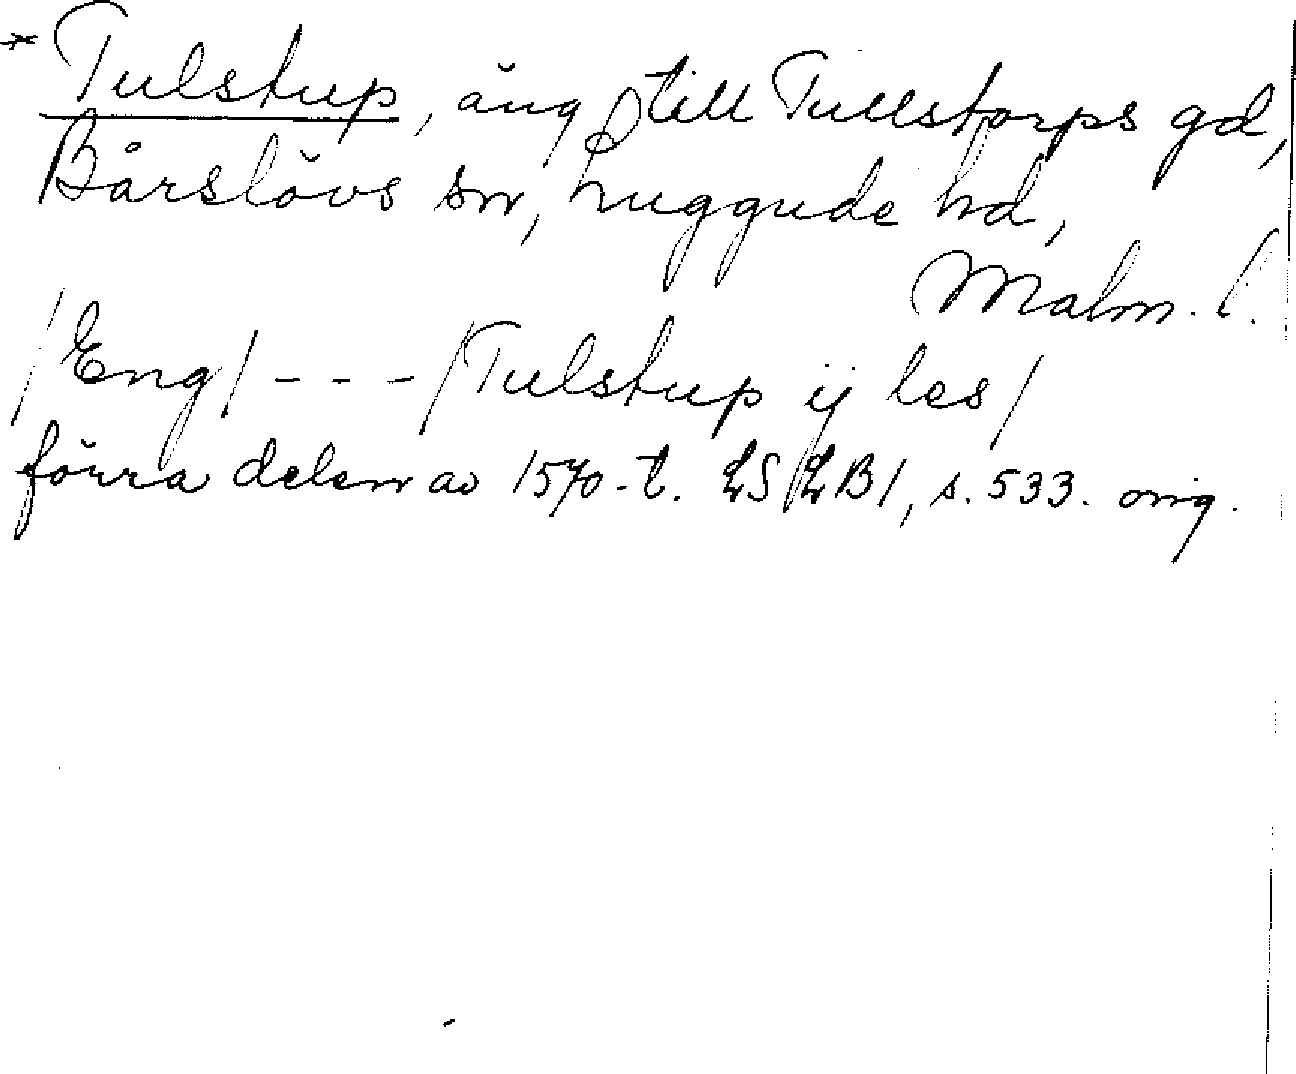 * Tulstup, äng till Tullstorps gd,
Bårslövs sn, Luggude hd,
Malm. l.
/Eng/ - - - /Tulstup ij les/
förra delen av 1570-t. LSLB1, s. 533. orig.